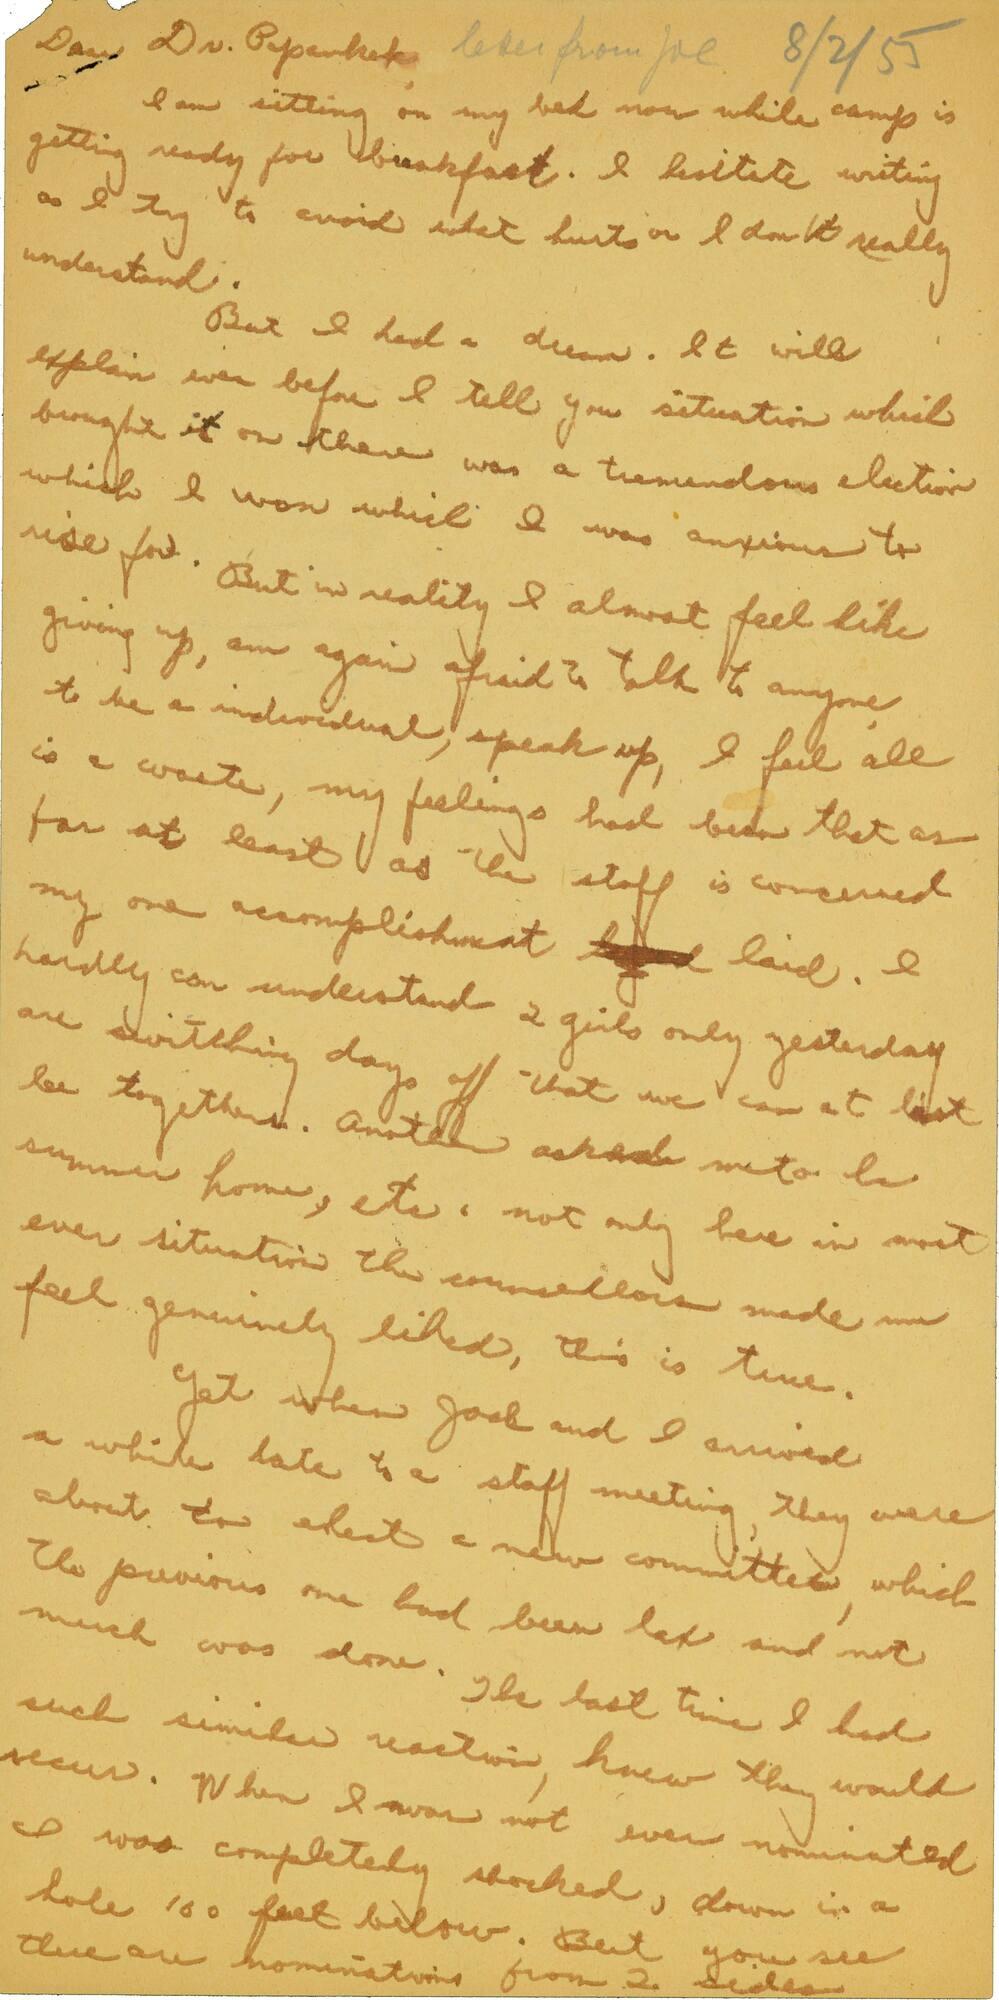 Dear Dr. Papenhek, letter from Joe 8/2/55
I am sitting on my bed now while camp is
getting ready for breakfast. I hesitate writing
as I try to avoid what hurts or I don't really
understand.
But I had a dream. It will
explain even before I tell you situation which
brought it on there was a tremendous election
which I won which I was anxious to
rise for. But in reality I almost feel like
giving up, am again afraid to talk to anyone,
to be a individual, speak up, I feel all
is a waste, my feelings had been that as
far at least as the staff is concerned
my one accomplishment laid. I
hardly can understand 2 girls only yesterday
are switching days off that we can at last
be together. Another asked me to be
summer home, etc. not only here in most
ever situation the counsellors made me
feel genuinely liked, this is true.
Yet when Jack and I arrived
a while late to a staff meeting, they were
about to elect a new committee, which
the previous one had been lax and not
much was done. The last time I had
such similar reaction, knew they would
recur. When I was not even nominated
I was completely shocked, down in a
hole 100 feet below. But you see
there are nominations from 2 sides